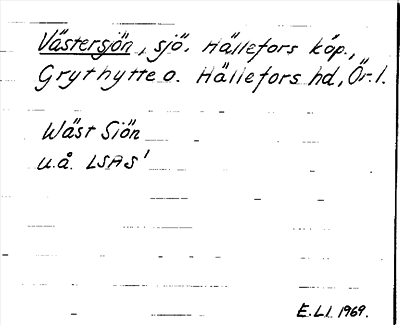 Västersjön, sjö. Hällefors köp.,
Grythytte o. Hällefors hd, Ör. l.
Wäst Siön
u.å. LSAS'
E.Ll. 1969.